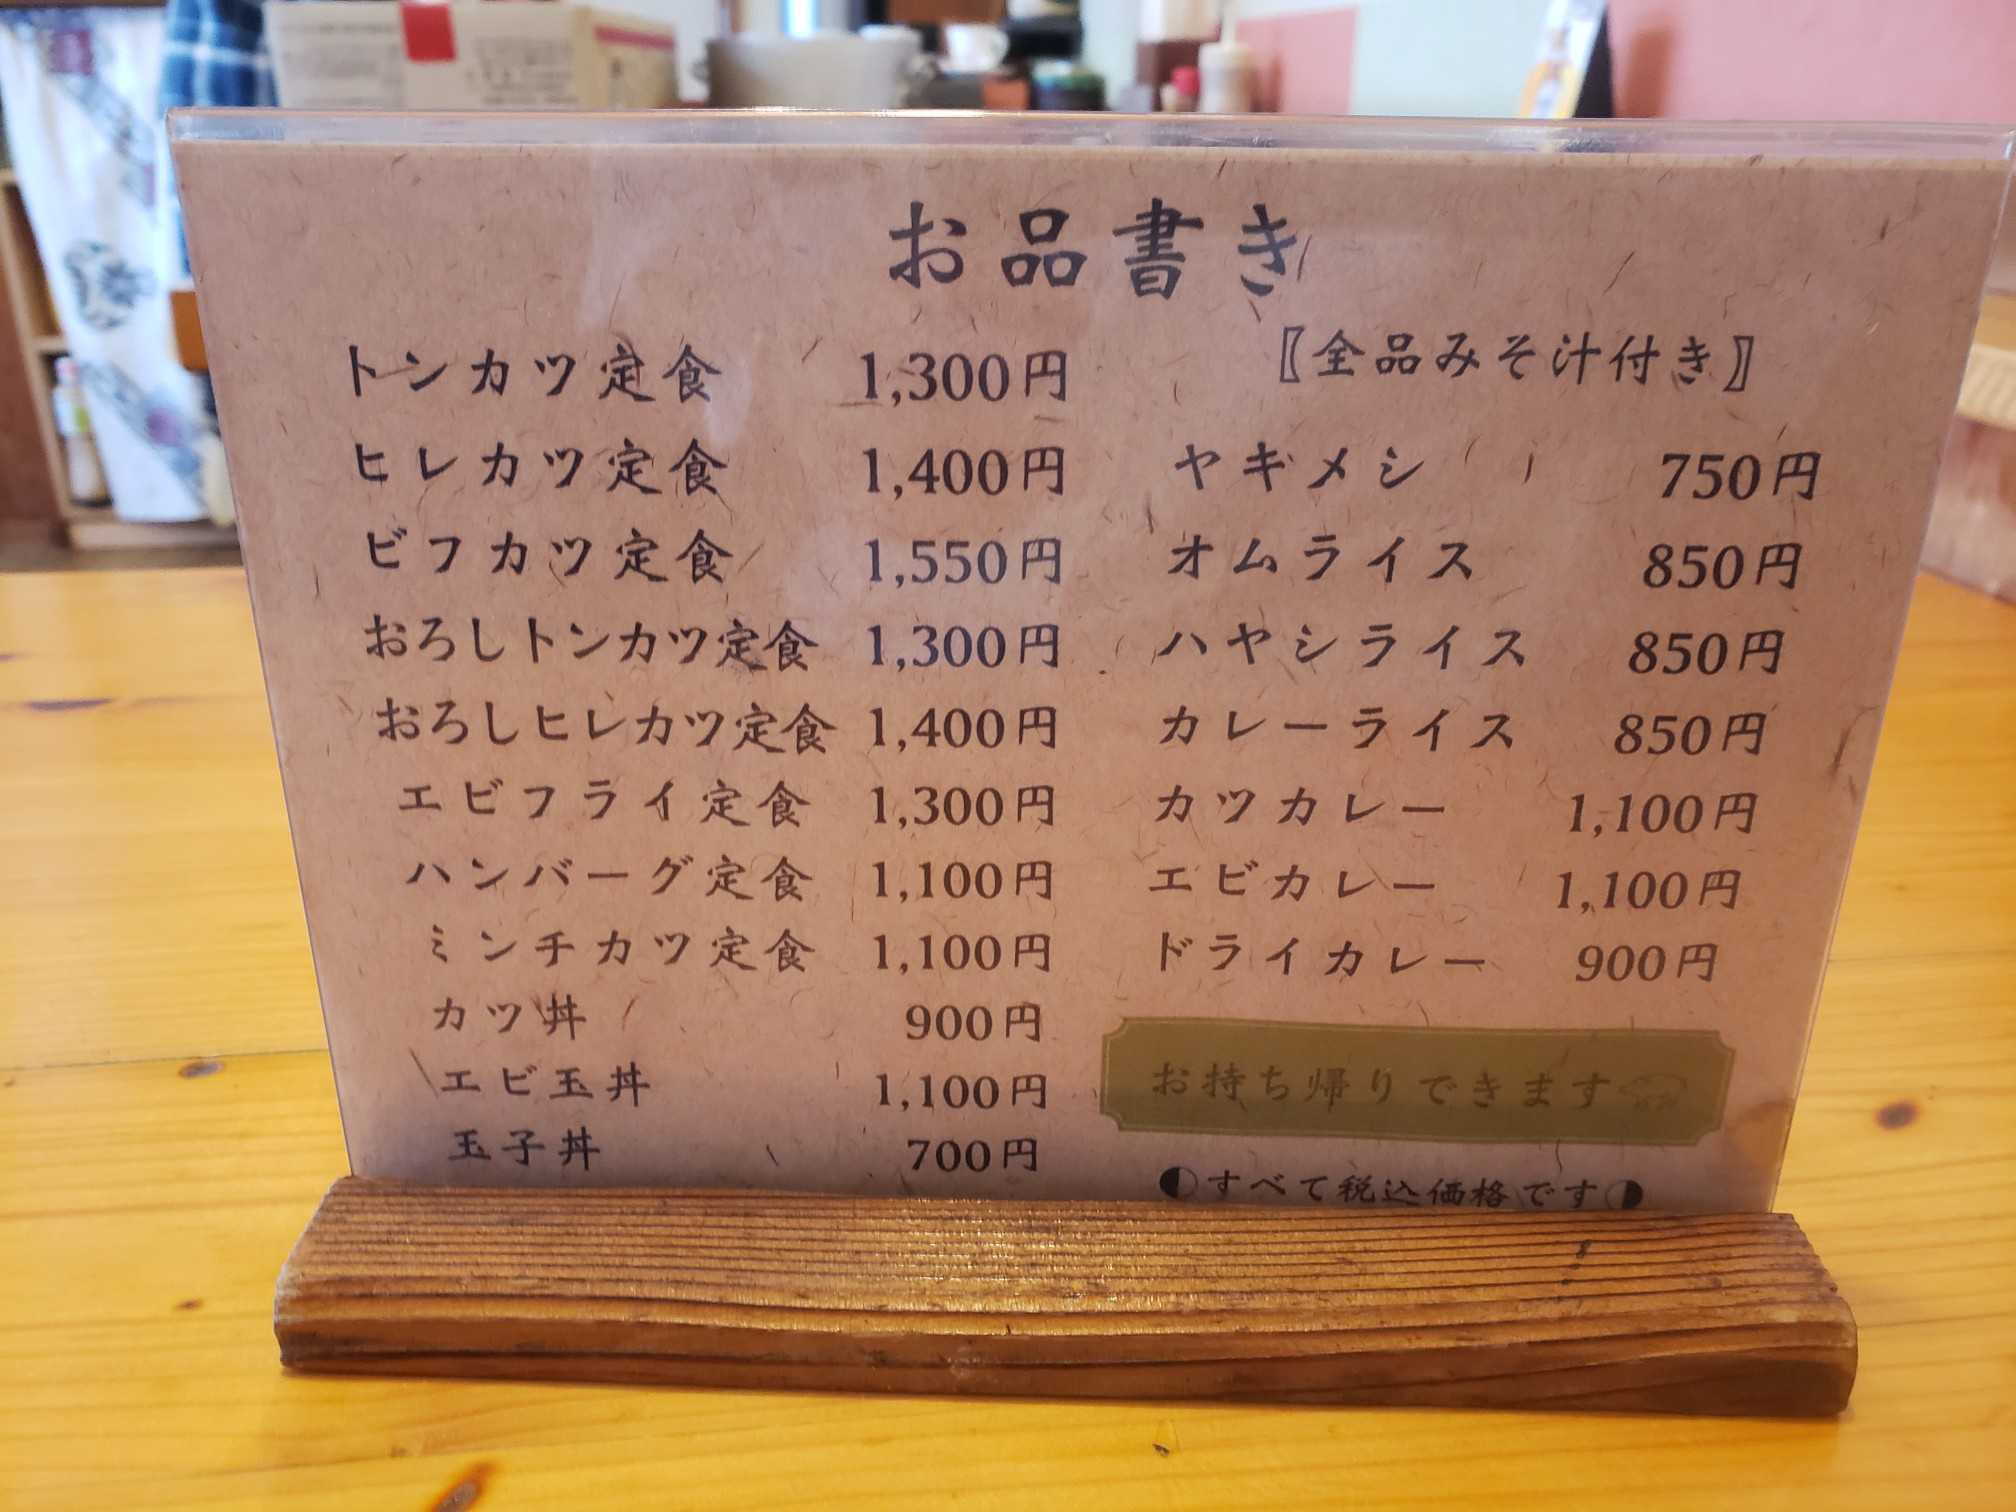 お品書き
トンカツ定食 1,300円
ヒレカツ定食 1,400円
ビフカツ定食 1,550円
おろしトンカツ定食 1,300円
おろしヒレカツ定食 1,400円
エビフライ定食 1,300円
ハンバーグ定食 1,100円
ミンチカツ定食 1,100円
カツ丼 900円
エビ玉丼 1,100円
玉子丼 700円
〖全品みそ汁付き〗
ヤキメシ 750円
オムライス 850円
ハヤシライス 850円
カレーライス 850円
カツカレー 1,100円
エビカレー 1,100円
ドライカレー 900円
お持ち帰りできます
◐すべて税込価格です◑